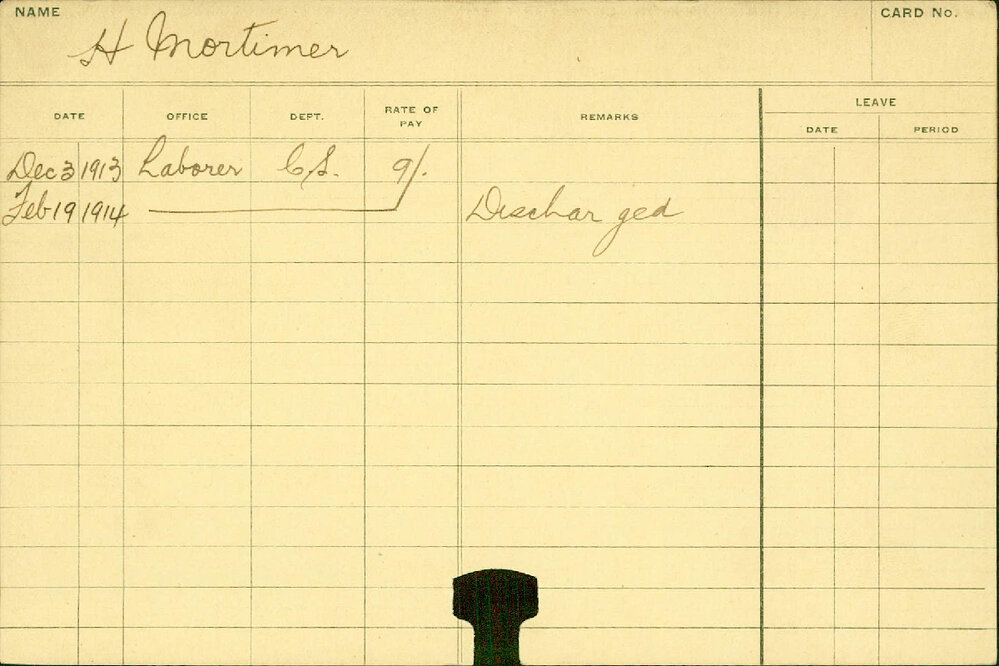 NAME
CARD No.
H Mortimer
DATE OFFICE DEPT. RATE OF PAY REMARKS LEAVE
DATE PERIOD
Dec 3 1913 Laborer C.S. 9/.
Feb 19 1914 Discharged